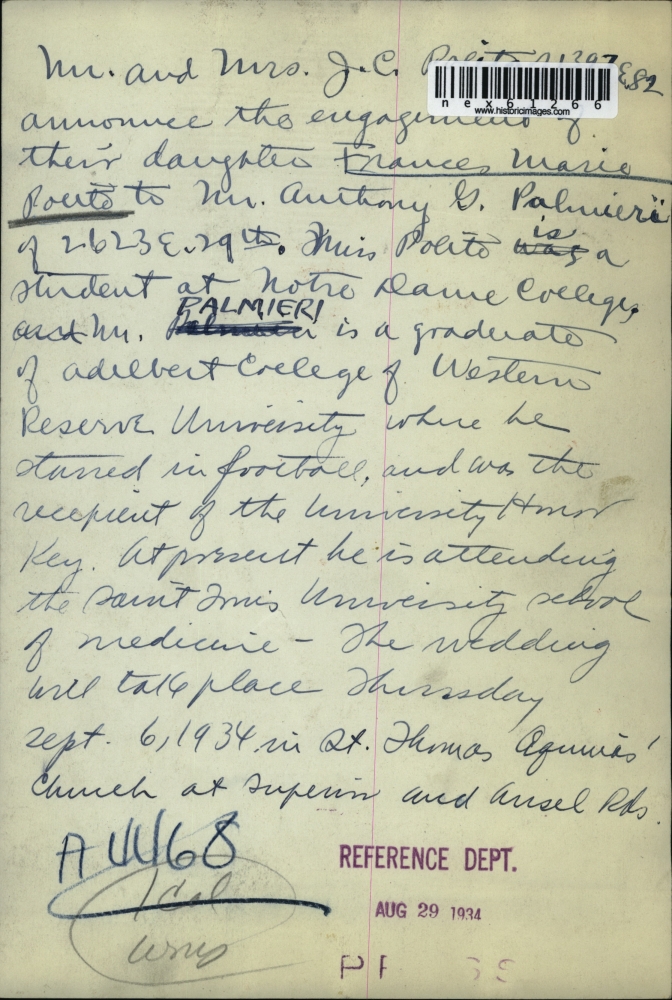 Mr. and Mrs. J. C.
nex61266
www.historicimages.com
announce the engagement of
their daughter Frances Marie
Polito to Mr. Anthony G. Palmieri
of 2623 E. 29th. Miss Polito is a
student at Notre Dame College,
and Mr. PALMIERI is a graduate
of Adelbert College of Western
Reserve University where he
starred in football, and was the
recipient of the University Honor
Key. At present he is attending
the Saint Louis University school
of medicine - The wedding
will take place Thursday
Sept. 6, 1934 in St. Thomas Aquinas'
Church at Superior and Ansel Rds.
A4468
REFERENCE DEPT.
AUG 29 1934